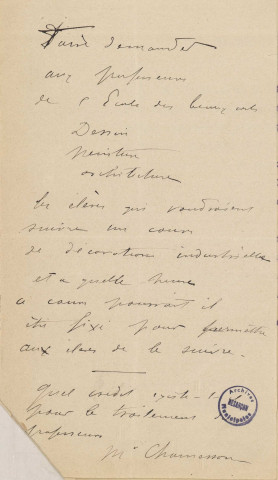 Faire demander
aux professeurs
de l'Ecole des beaux arts
Dessin
peinture
architecture
les élèves qui voudraient
suivre un cours
de décoration industrielle
et a quelle heure
ce cours pourrait il
être fixé pour permettre
aux élèves de le suivre.
Quel crédit existe-t
pour le traitement
professeur
Mr
Archives
BESANÇON
Municipales